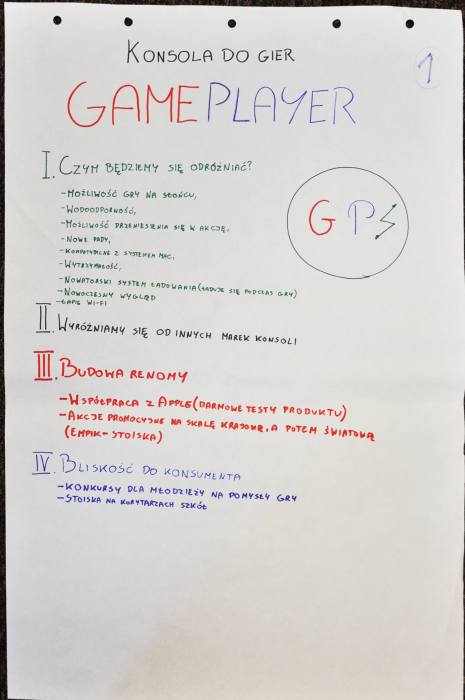 KONSOLA DO GIER
1
GAMEPLAYER
I. CZYM BĘDZIEMY SIĘ ODRÓŻNIAĆ?
-MOŻLIWOŚĆ GRY NA SŁOŃCU,
-WODOODPORNOŚĆ,
-MOŻLIWOŚĆ PRZENIESIENIA SIĘ W AKCJĘ,
-NOWE PADY,
-KOMPATYBILNE Z SYSTEMEM MAC,
-WYTRZYMAŁOŚĆ,
-NOWATORSKI SYSTEM ŁADOWANIA (ŁADUJE SIĘ PODCZAS GRY)
-NOWOCZESNY WYGLĄD
WI-FI
GP
II WYRÓŻNIAMY SIĘ OD INNYCH MAREK KONSOLI
III. BUDOWA RENOMY
-WSPÓŁPRACA Z APPLE (DARMOWE TESTY PRODUKTU)
-AKCJE PROMOCYJNE NA SKALĘ KRAJOWĄ, A POTEM ŚWIATOWĄ
(EMPIK-STOISKA)
IV. BLISKOŚĆ DO KONSUMENTA
-KONKURSY DLA MŁODZIEŻY NA POMYSŁY GRY
-STOISKA NA KORYTARZACH SZKÓŁ